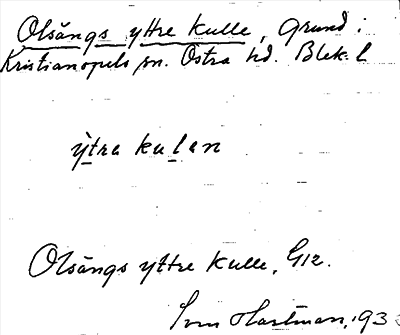 Olsängs yttre kulle, grund i
Kristianopels sn. Östra hd. Blek. l
ỳtra kulan
Olsängs yttre kulle, G12.
Sven Hartman, 193